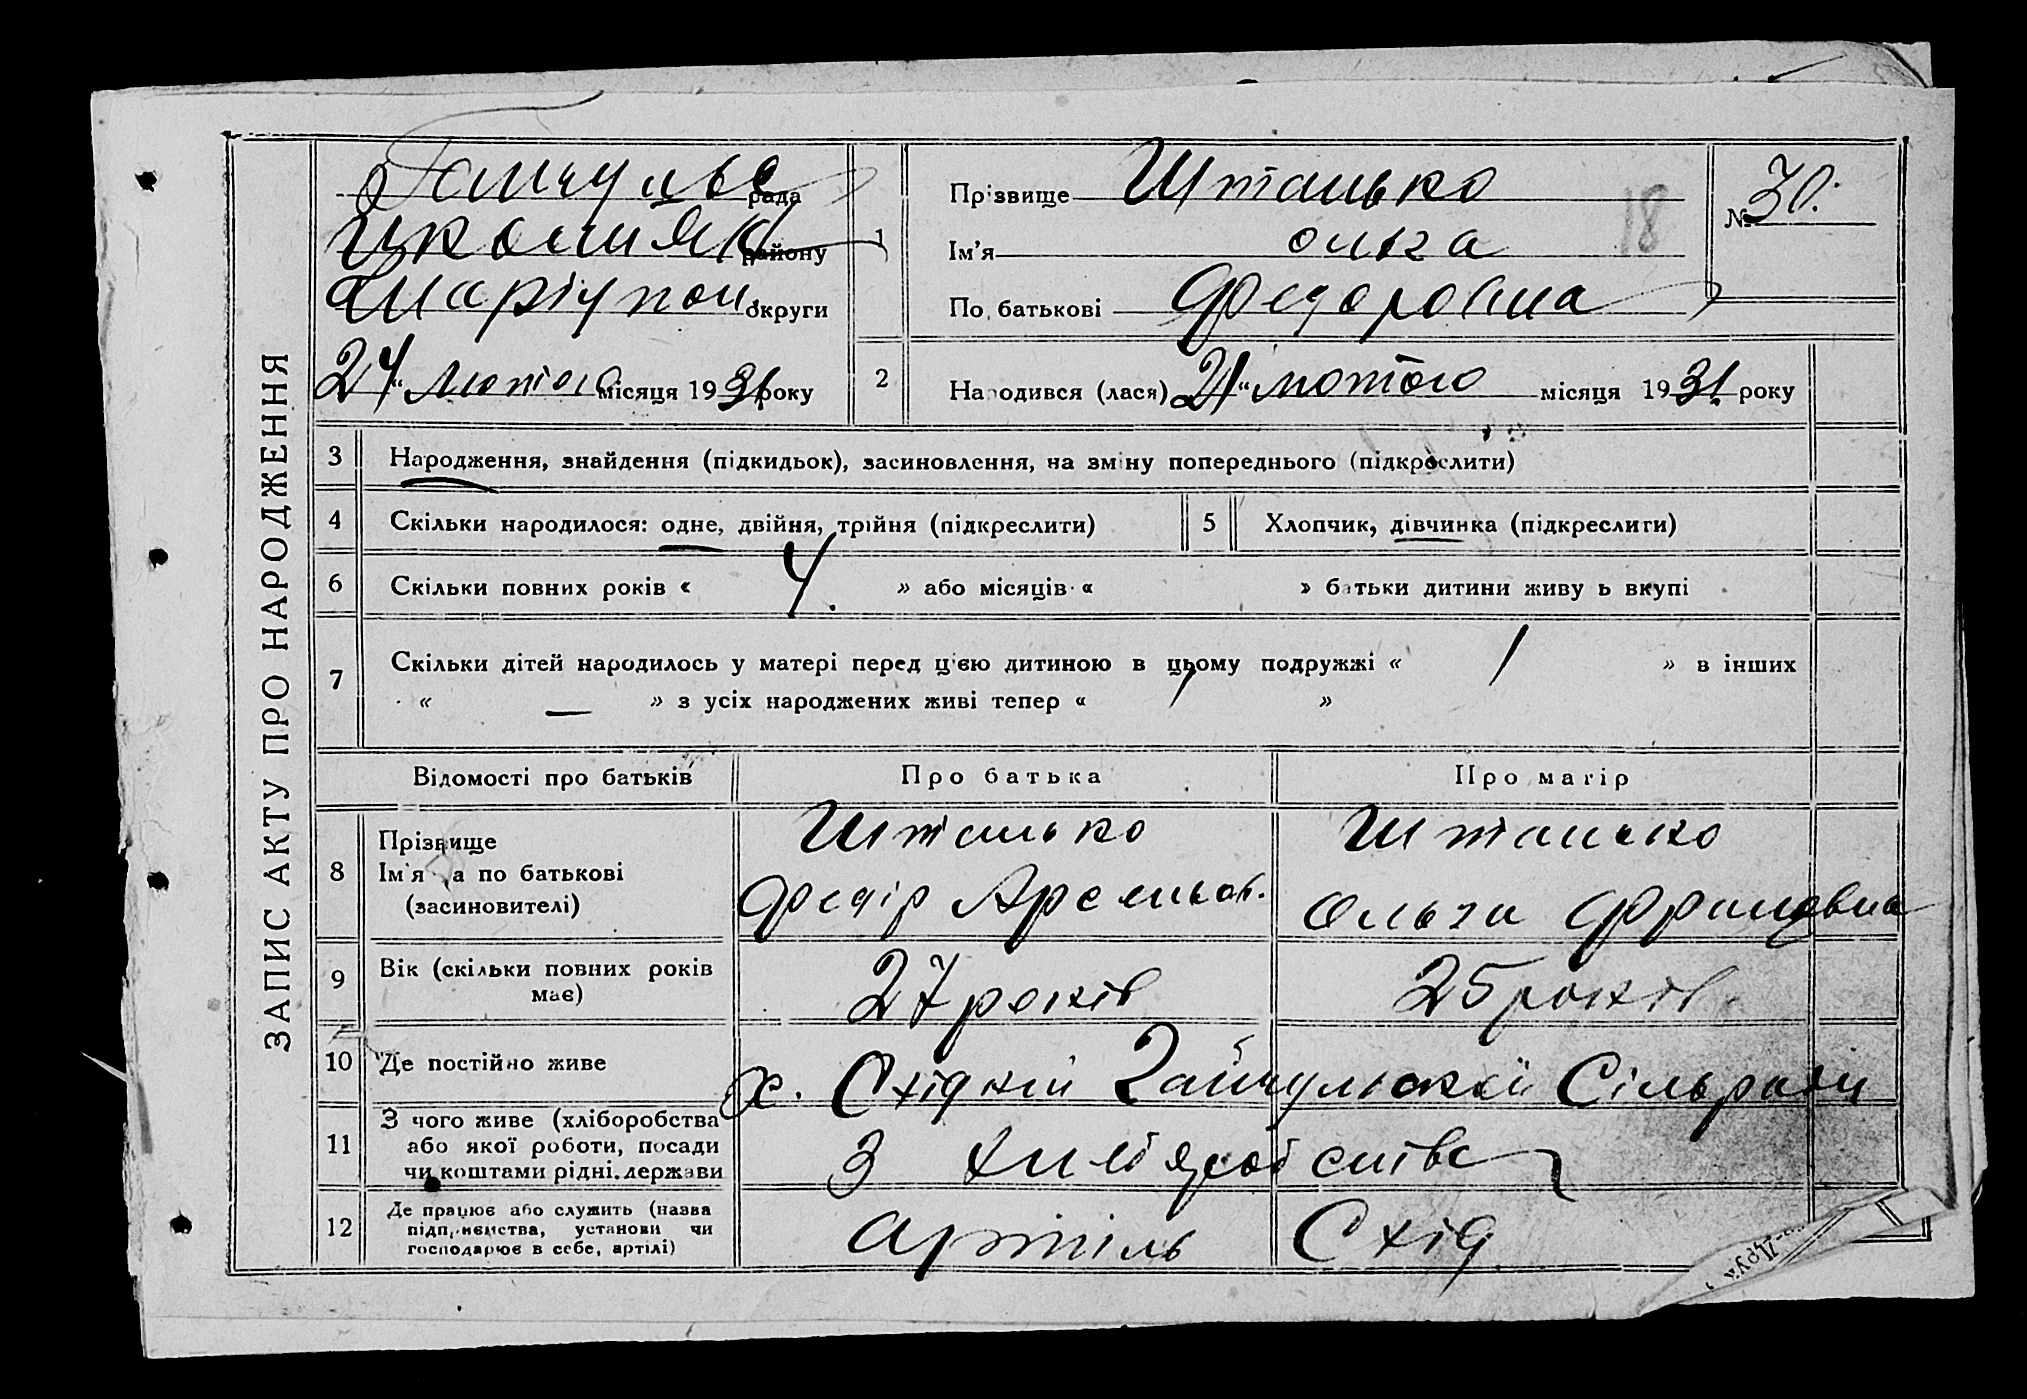 ЗАПИС АКТУ ПРО НАРОДЖЕННЯ
рада
району
Маріупол. округи
24 “ Лютого місяця 1931 року
1
Прізвище Штанько
Ім’я Ольга
По батькові Федоровна
18
№ 30.
2
Народився (лася) 21 “ лютого місяця 1931. року
3 Народження, знайдення (підкидьок), засиновлення, на зміну попереднього (підкреслити)
4 Скільки народилося: одне, двійня, трійня (підкреслити)
5 Хлопчик, дівчинка (підкреслити)
6 Скільки повних років « 4. » або місяців « » батьки дитини живуть вкупі
7 Скільки дітей народилось у матері перед цією дитиною в цьому подружжі « 1 » в інших
« — » з усіх народжених живі тепер « 1 »
Відомості про батьків Про батька Про матір
8 Прізвище Ім’я та по батькові (засиновителі)
Штанько
Федір Арсентьов.
Штанько
Ольга
9 Вік (скільки повних років має)
27 років
25 років.
10 Де постійно живе
х. Східний Гайчульскої Сільради
11 З чого живе (хліборобства або якої роботи, посади чи коштами рідні, держави
З хліборобства
12 Де працює або служить (назва підприємства, установи чи господарює в себе, артілі)
Артіль Схід.
Друк.